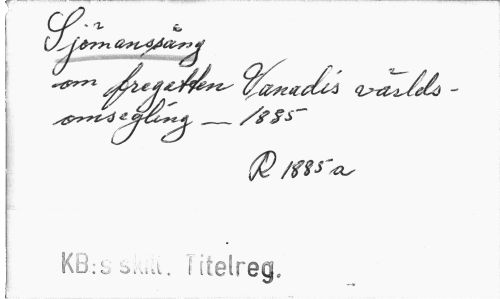 Sjömanssång
om fregatten Vanadis världs-
omsegling — 1885
R 1885 a
KB:s skill. Titelreg.